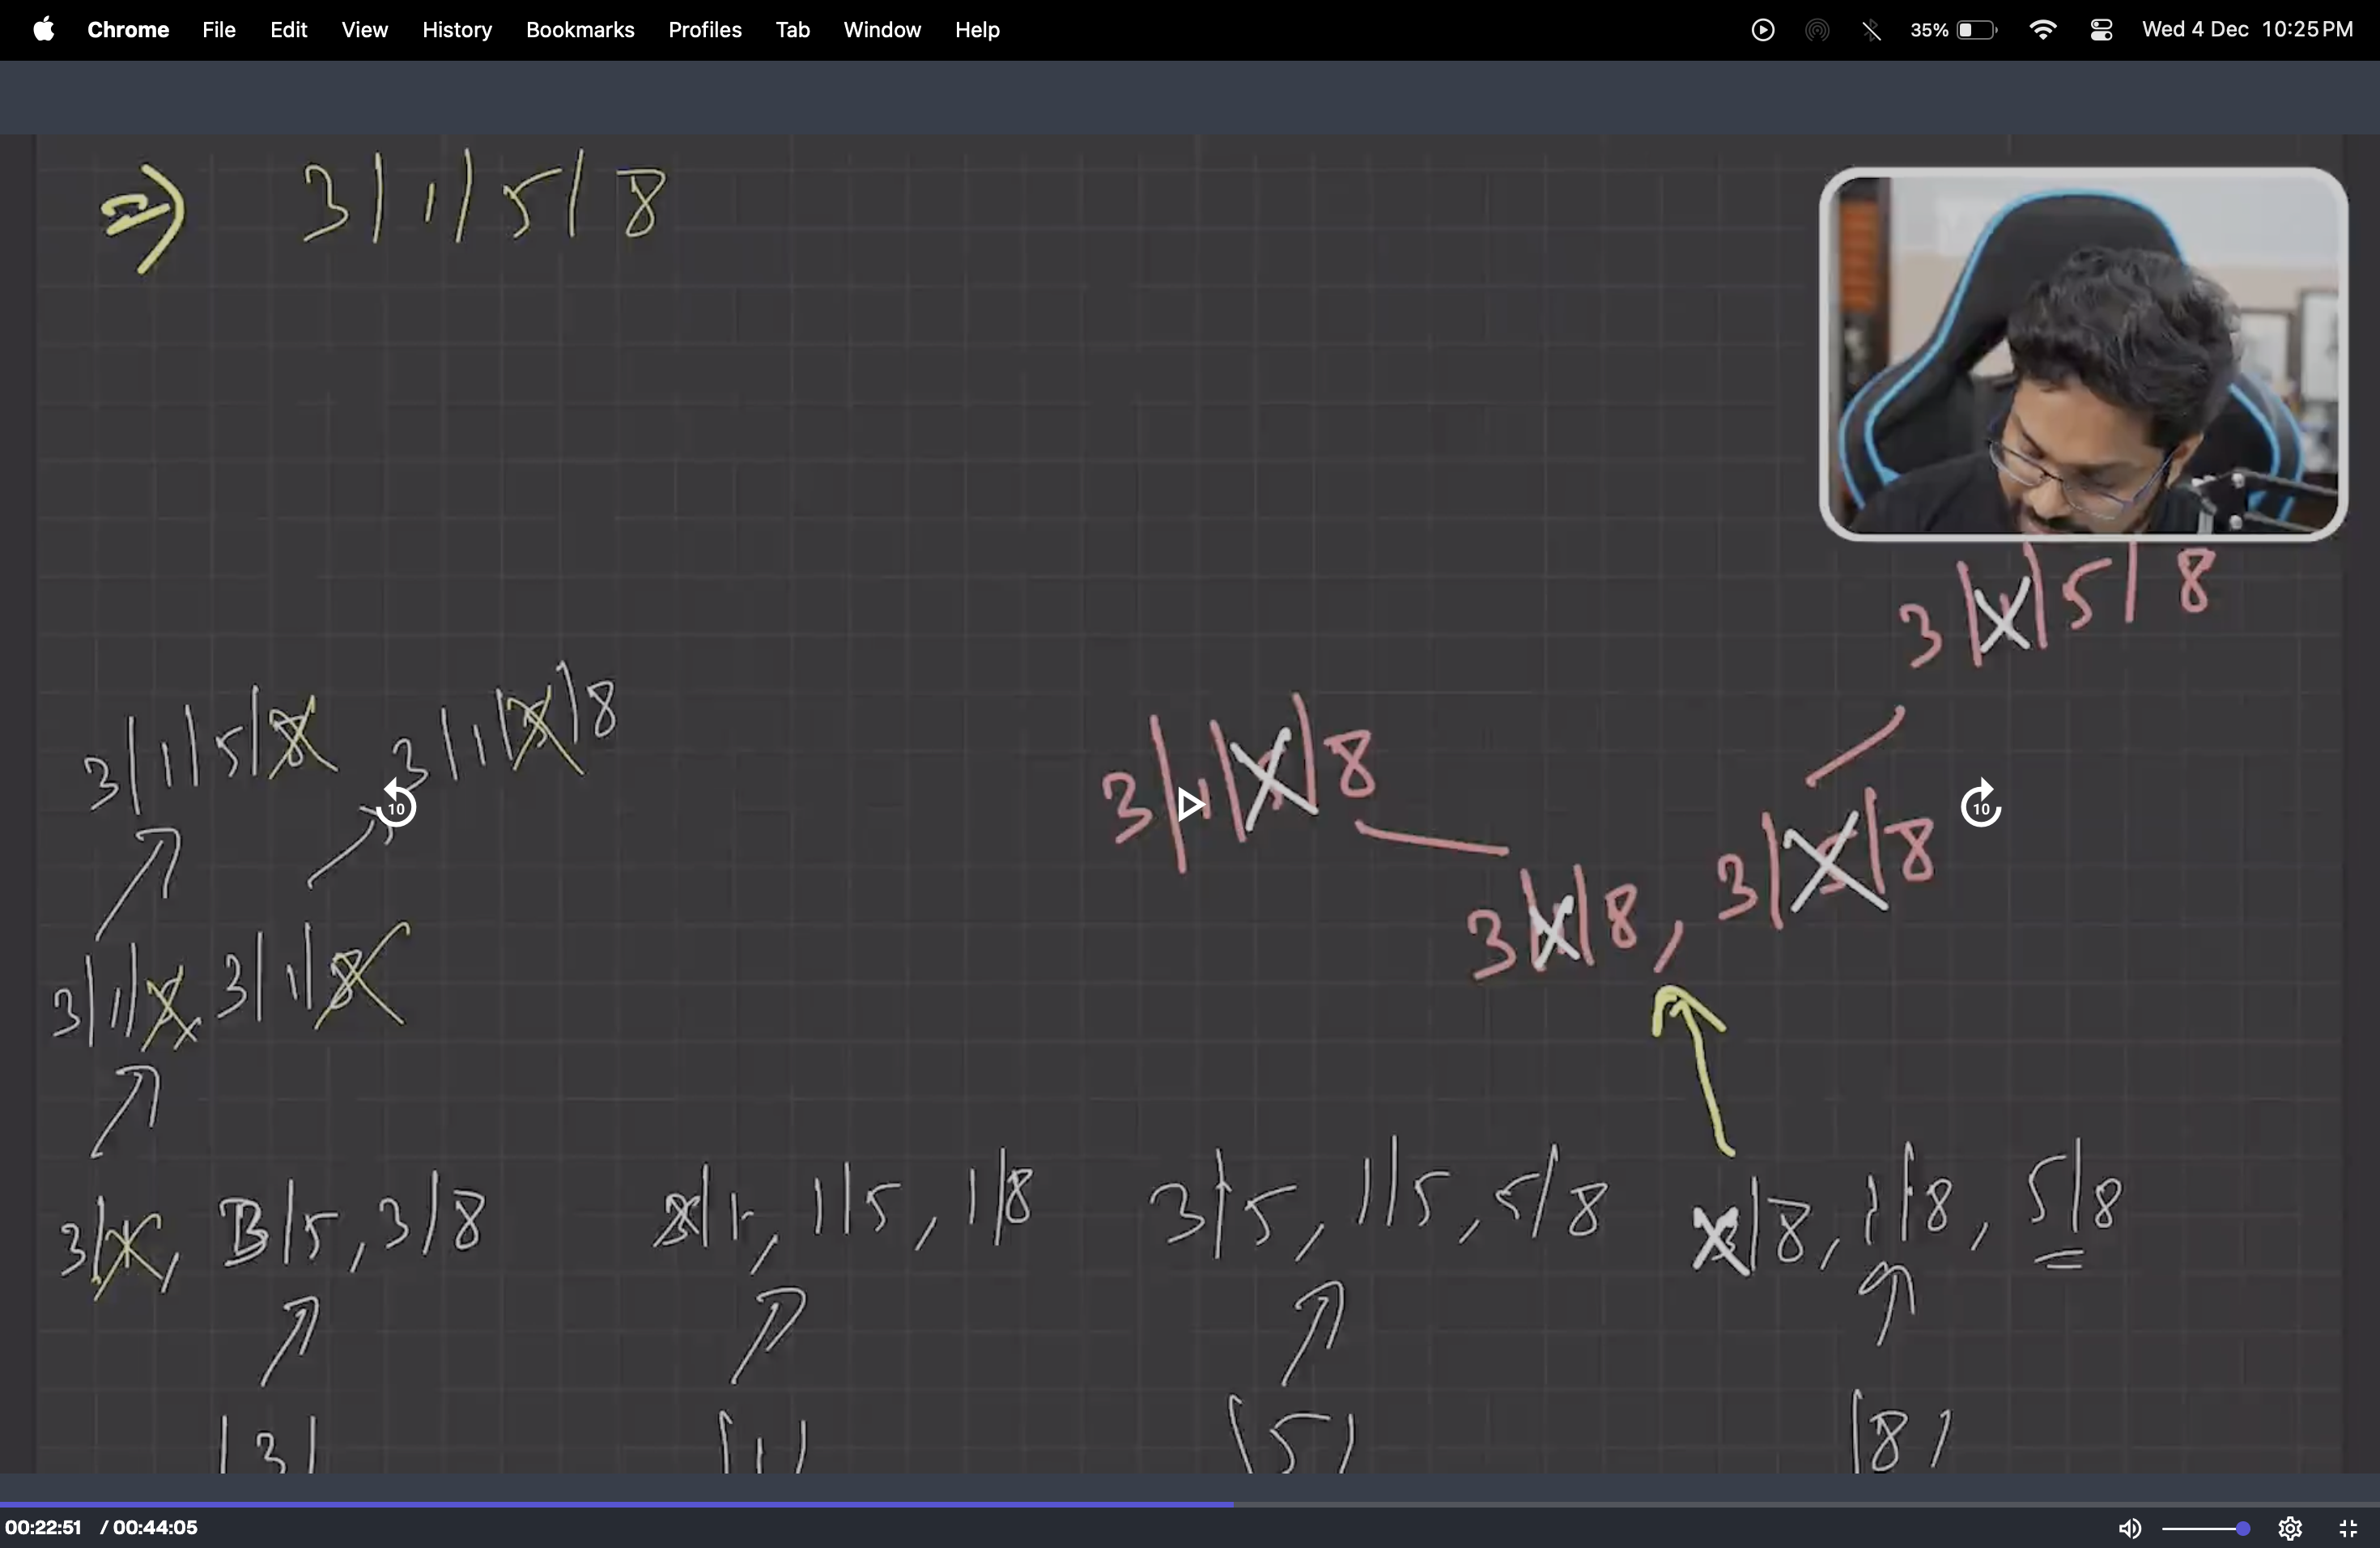 Chrome File Edit View History Bookmarks Profiles Tab Window Help 35% Wed 4 Dec 10:25 PM
3 | 1 | 5 | 8
3 | 1 | 5 | 8
3 | 1 | 5 | 8 3 | 1 | 5 | 8
3 | 1 | 5 | 8
3 | 1 | 8 , 3 | 5 | 8
3 | 1 | 5 3 | 1 | 8
3 | 1 , 3 | 5 , 3 | 8 3 | 1 , 1 | 5 , 1 | 8 3 | 5 , 1 | 5 , 5 | 8 3 | 8 , 1 | 8 , 5 | 8
| 3 | | 1 | | 5 | | 8 |
10 10
00:22:51 / 00:44:05